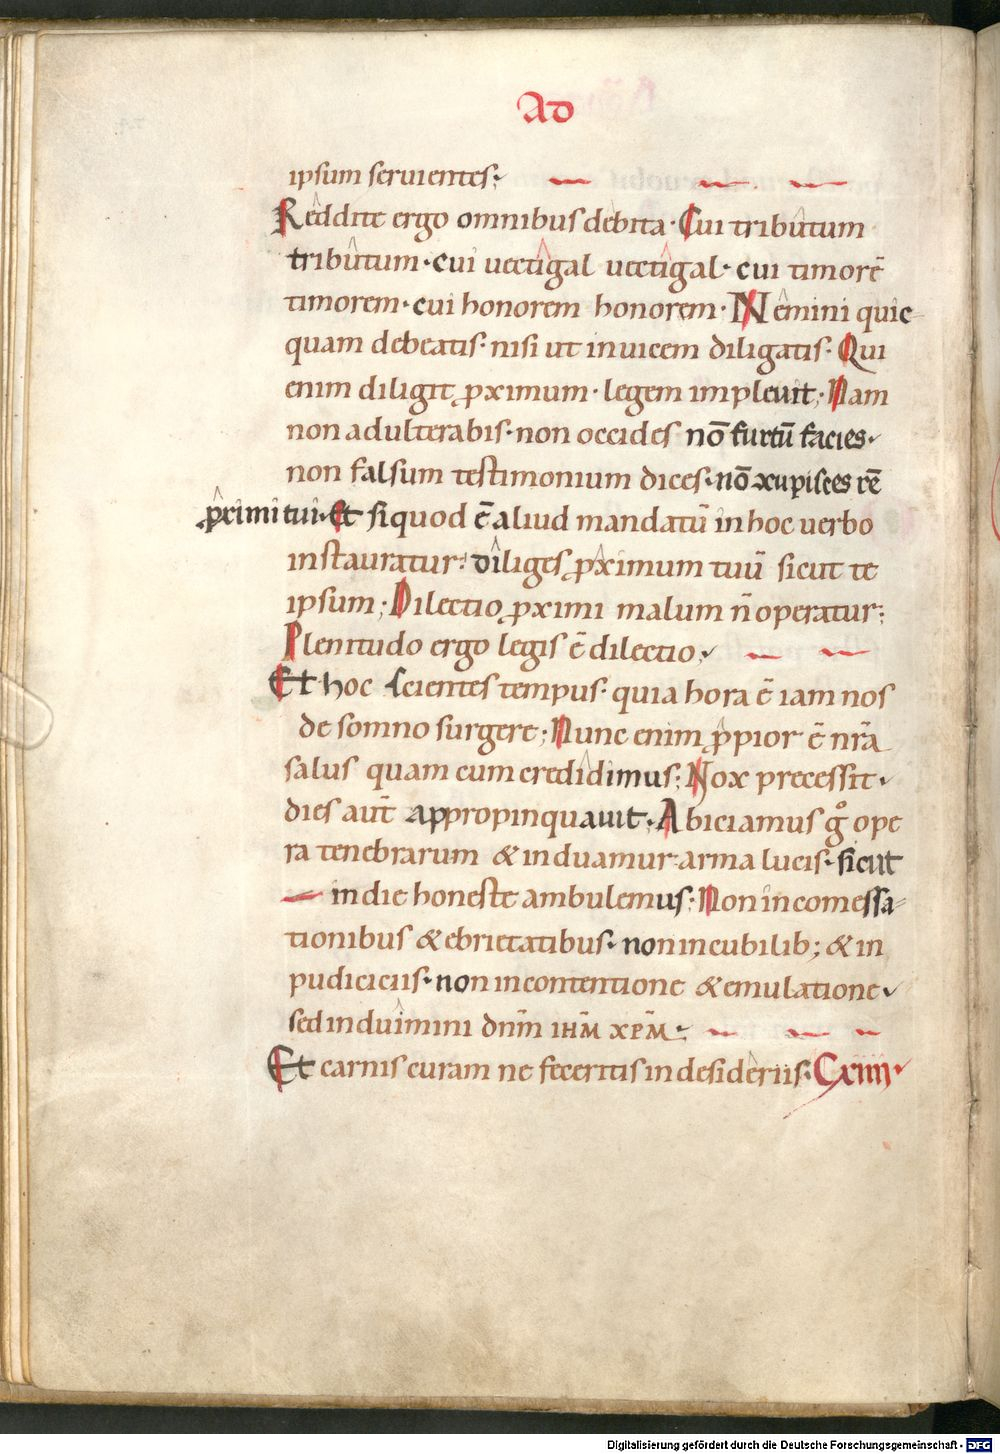 Ad
ipsum seruientes;
Reddite ergo omnibus debita. Cui tributum
tributum. cui uectigal uectigal. cui timorē
timorem. cui honorem honorem. Nemini quic-
quam debeatis. nisi ut inuicem diligatis. Qui
enim diligit ꝓximum. legem impleuit; Nam
non adulterabis. non occides nō furtū facies.
non falsum testimonium dices. nō ɔcupisces rē
ꝓximi tui. Et si quod ē aliud mandatū in hoc uerbo
instauratur; diliges ꝓximum tuū sicut te
ipsum; Dilectio ꝓximi malum n̄ operatur;
Plenitudo ergo legis ē dilectio;
Et hoc scientes tempus. quia hora ē iam nos
de somno surgere; Nunc enim ꝓpior ē nr̄a
salus quam cum credidimus; Nox precessit.
dies aut̄ appropinquauit. Abiciamus gͦ ope
ra tenebrarum & induamur arma lucis. sicut
in die honeste ambulemus. Non in comessa-
tionibus & ebrietatibus. non in cubilib; & in
pudiciciis. non in contentione & emulatione.
sed induimini dnm̄ ihm̄ xpm̄.
Et carnis curam ne feceritis in desideriis. Cxiiii.
Digitalisierung gefördert durch die Deutsche Forschungsgemeinschaft - DFG